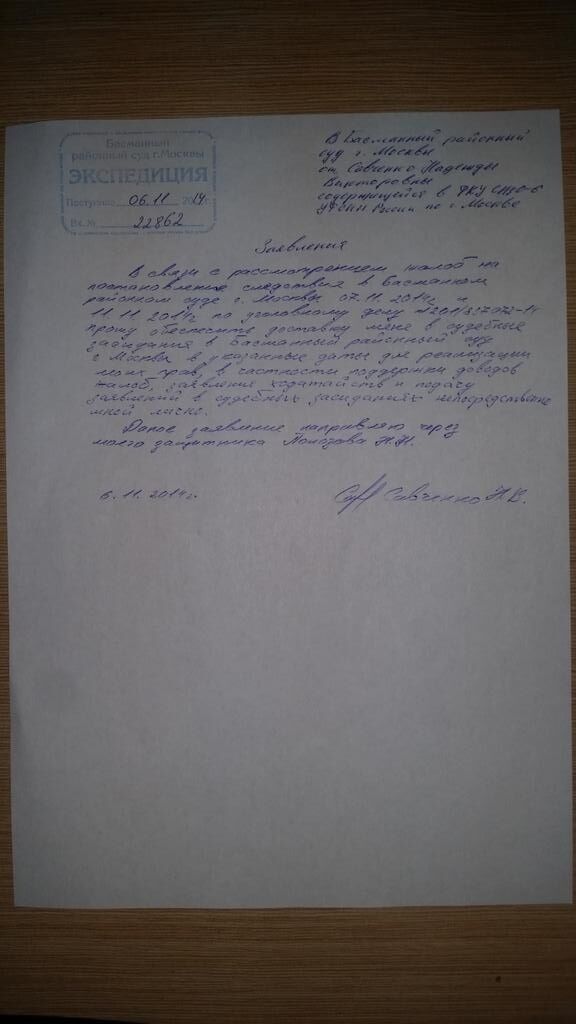 Басманный
районный суд г. Москвы
ЭКСПЕДИЦИЯ
Поступило 06.11 2014г.
Вх. № 22862
В Басманный районный
суд г. Москвы
от Савченко Надежды
Викторовны
содержащейся в ФКУ СИЗО-6
УФСИН России по г. Москве
Заявления
В связи с рассмотрением жалоб на
постановление следствия в Басманном
районом суде г. Москвы 07.11.2014г и
11.11.2014г по уголовному делу №201/837072-14
прошу обеспечить доставку меня в судебные
заседания в Басманный районный суд
г Москвы в указанные даты для реализации
моих прав, в частности поддержки доводов
жалоб, заявления ходатайств и подачу
заявлений в судебных заседаниях непосредственно
мной лично.
Даное заявление направляю через
моего защитника Полозова Н.Н.
6.11.2014г. Савченко Н.В.